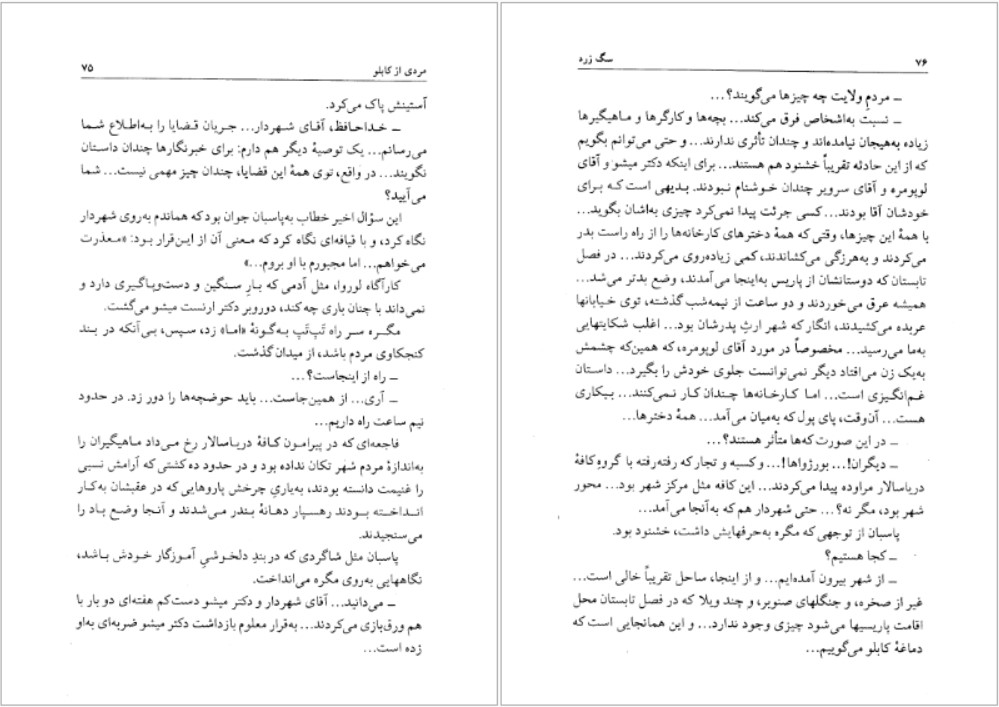 مردی از کابلو ۷۵
آستینش پاک می‌کرد.
ــ خداحافظ، آقای شهردار... جریان قضایا را به‌اطلاع شما
می‌رسانم... یک توصیهٔ دیگر هم دارم: برای خبرنگارها چندان داستان
نگویند... در واقع، توی همهٔ این قضایا، چندان چیز مهمی نیست... شما
می‌آیید؟
این سؤال اخیر خطاب به‌پاسبان جوان بود که هماندم به‌روی شهردار
نگاه کرد، و با قیافه‌ای نگاه کرد که معنی آن از این‌قرار بود: «معذرت
می‌خواهم... اما مجبورم با او بروم...»
کارآگاه لوروا، مثل آدمی که بارِ سنگین و دست‌وپاگیری دارد و
نمی‌داند با چنان باری چه کند، دوروبر دکتر ارنست میشو می‌گشت.
مگره سر راه تَپ‌تَپ به‌گونهٔ «اما» زد، سپس، بی‌آنکه در بند
کنجکاوی مردم باشد، از میدان گذشت.
ــ راه از اینجاست؟...
ــ آری... از همین‌جاست... باید حوضچه‌ها را دور زد. در حدود
نیم ساعت راه داریم...
فاجعه‌ای که در پیرامون کافهٔ دریاسالار رخ می‌داد ماهیگیران را
به‌اندازهٔ مردم شهر تکان نداده بود و در حدود ده کشتی که آرامش نسبی
را غنیمت دانسته بودند، به‌یاریِ چرخش پاروهایی که در عقبشان به‌کار
انداخته بودند رهسپار دهانهٔ بندر می‌شدند و آنجا وضع باد را
می‌سنجیدند.
پاسبان مثل شاگردی که دربندِ دلخوشیِ آموزگار خودش باشد،
نگاههایی به‌روی مگره می‌انداخت.
ــ می‌دانید... آقای شهردار و دکتر میشو دست‌کم هفته‌ای دو بار با
هم ورق‌بازی می‌کردند... به‌قرار معلوم بازداشت دکتر میشو ضربه‌ای به‌او
زده است...
۷۶ سگ زرد
ــ مردمِ ولایت چه چیزها می‌گویند؟...
ــ نسبت به‌اشخاص فرق می‌کند... بچه‌ها و کارگرها و ماهیگیرها
زیاده به‌هیجان نیامده‌اند و چندان تأثری ندارند... و حتی می‌توانم بگویم
که از این حادثه تقریباً خشنود هم هستند... برای اینکه دکتر میشو و آقای
لوپومره و آقای سرویر چندان خوشنام نبودند. بدیهی است که برای
خودشان آقا بودند... کسی جرئت پیدا نمی‌کرد چیزی به‌اشان بگوید...
با همهٔ این چیزها، وقتی که همهٔ دخترهای کارخانه‌ها را از راه راست بدر
می‌کردند و به‌هرزگی می‌کشاندند، کمی زیاده‌روی می‌کردند... در فصل
تابستان که دوستانشان از پاریس به‌اینجا می‌آمدند، وضع بدتر می‌شد...
همیشه عرق می‌خوردند و دو ساعت از نیمه‌شب گذشته، توی خیابانها
عربده می‌کشیدند، انگار که شهر ارثِ پدرشان بود... اغلب شکایتهایی
به‌ما می‌رسید... مخصوصاً در مورد آقای لوپومره، که همین‌که چشمش
به‌یک زن می‌افتاد دیگر نمی‌توانست جلوی خودش را بگیرد... داستان
غم‌انگیزی است... اما کارخانه‌ها چندان کار نمی‌کنند... بیکاری
هست... آن‌وقت، پای پول که به‌میان می‌آمد... همهٔ دخترها...
ــ در این صورت که‌ها متأثر هستند؟...
ــ دیگران!... بورژواها!... و کسبه و تجار که رفته‌رفته با گروهِ کافهٔ
دریاسالار مراوده پیدا می‌کردند... این کافه مثل مرکز شهر بود... محور
شهر بود، مگر نه؟... حتی شهردار هم که به‌آنجا می‌آمد...
پاسبان از توجهی که مگره به‌حرفهایش داشت، خشنود بود.
ــ کجا هستیم؟
ــ از شهر بیرون آمده‌ایم... و از اینجا، ساحل تقریباً خالی است...
غیر از صخره، و جنگلهای صنوبر، و چند ویلا که در فصل تابستان محل
اقامت پاریسیها می‌شود چیزی وجود ندارد... و این همانجایی است که
دماغهٔ کابلو می‌گوییم...